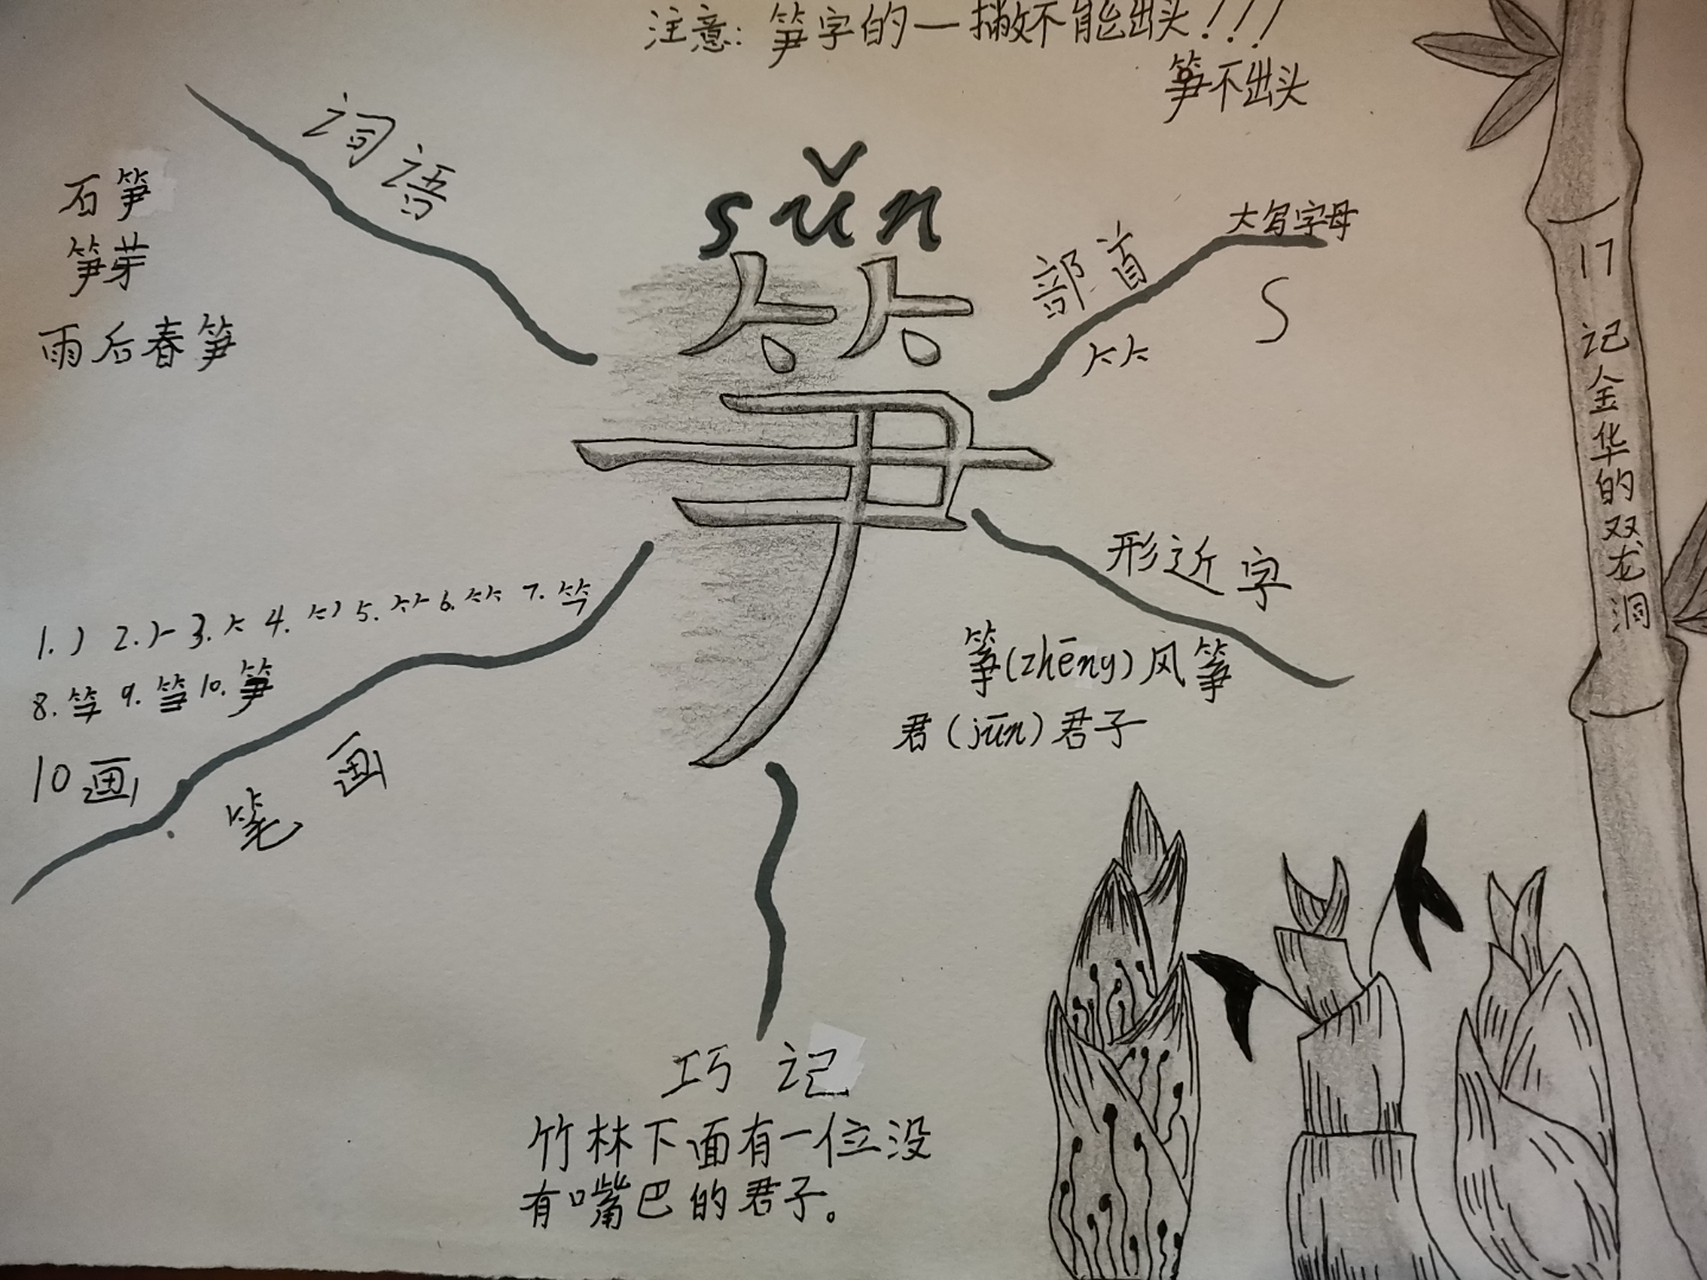 注意:笋字的一撇不能出头!!!
笋不出头
词语
石笋
笋芽
雨后春笋
sǔn
笋
部首
⺮
大写字母
S
形近字
筝(zhēng)风筝
君(jūn)君子
10画
笔画
巧记
竹林下面有一位没
有嘴巴的君子。
17 记金华的双龙洞